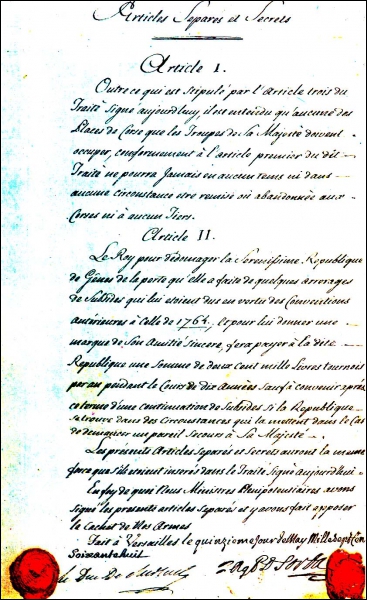 Articles Separés et Secrets
Article I.
Outre ce qui est stipulé par l'Article trois du
Traité signé aujourdhuy, il est entendu qu'aucune des
Places de Corse que les Troupes de Sa Majesté doivent
occuper, conformément à l'article premier du dit
Traité ne pourra Jamais en aucun tems ni dans
aucune circonstance etre remise ou abandonnée aux
Corses ni à aucun Tiers.
Article II.
Le Roy pour dédomager la Serenissime Republique
de Gênes de la perte qu'elle a faite de quelques arrerages
de Subsides qui lui etoient dus en vertu des Conventions
antérieures à Celle de 1764, et pour lui donner une
marque de Son Amitié Sincere, fera payer à la dite
Republique une Somme de deux Cent mille Livres tournois
par an pendant le Cours de Dix Années Sauf à convenir après
ce terme d'une continuation de Subsides si la Republique
se trouve dans des Circonstances qui la mettent dans le Cas
de demander un pareil Secours à Sa Majesté.
Les présents Articles Separés et Secrets auront la meme
force que s'ils etoient inserés dans le Traité Signé Aujourd'hui.
En foy de quoi Nous Ministres Plenipotentiaires avons
Signé les presents articles Separés et y avons fait apposer
le Cachet de Nos Armes
Fait à Versailles le quinzieme jour de May Mille Sept Cent
Soixante huit
le Duc De Choiseul Ag. D Sorba